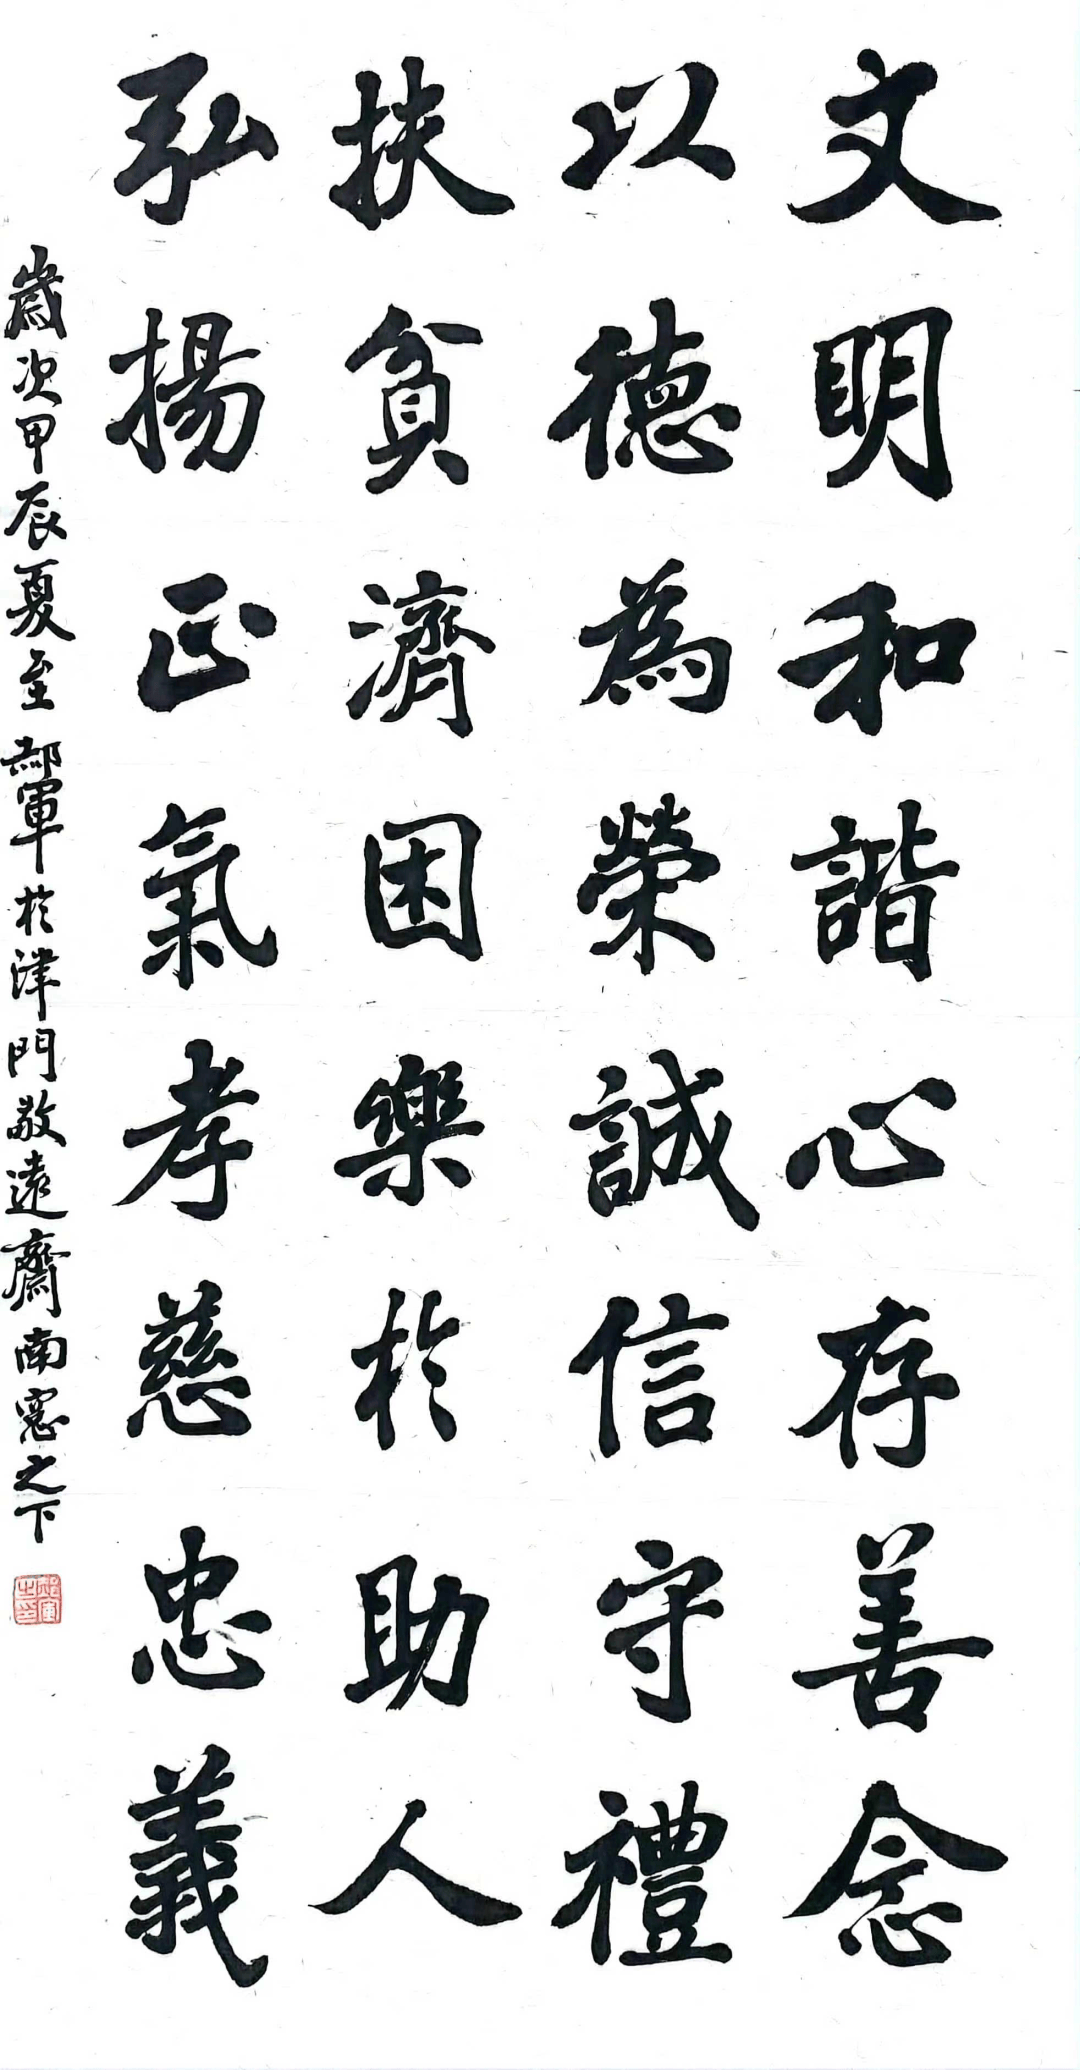 文明和諧心存善念
以德為榮誠信守禮
扶貧濟困樂於助人
弘揚正氣孝慈忠義
歲次甲辰夏至郝軍於津門敬遠齋南窓之下